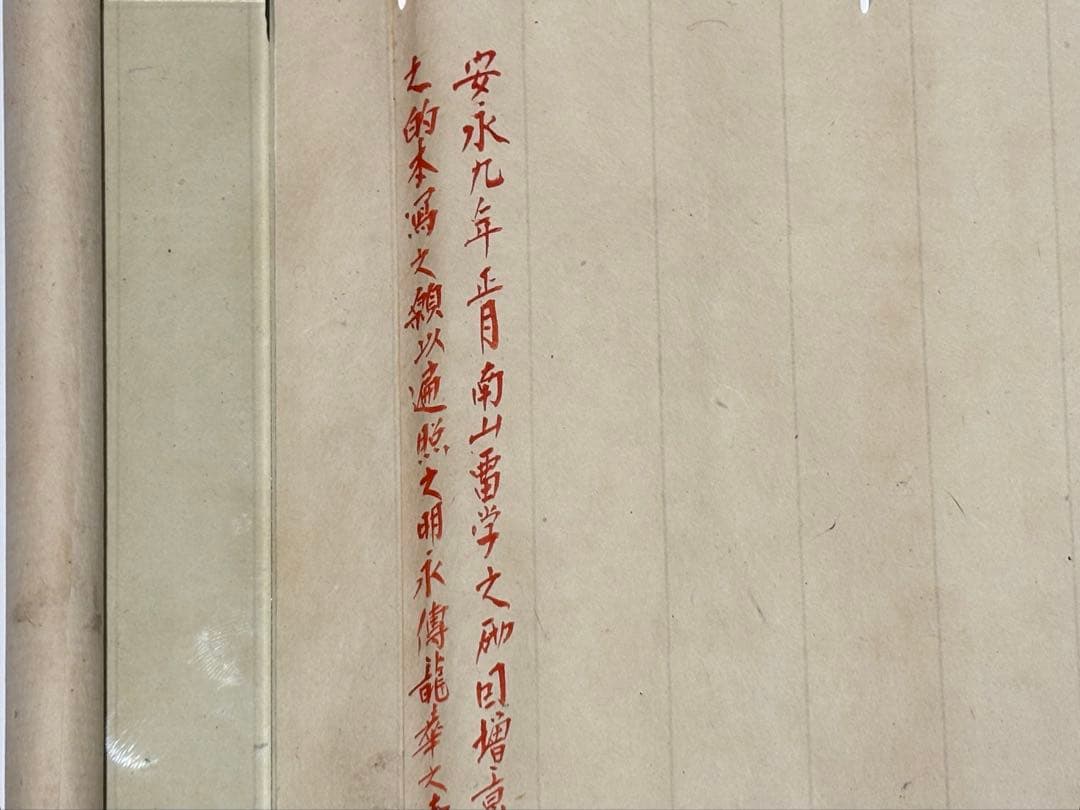 安永九年正月南山留学之砌回増意
之的本写之願以遍照之明永傳龍華之